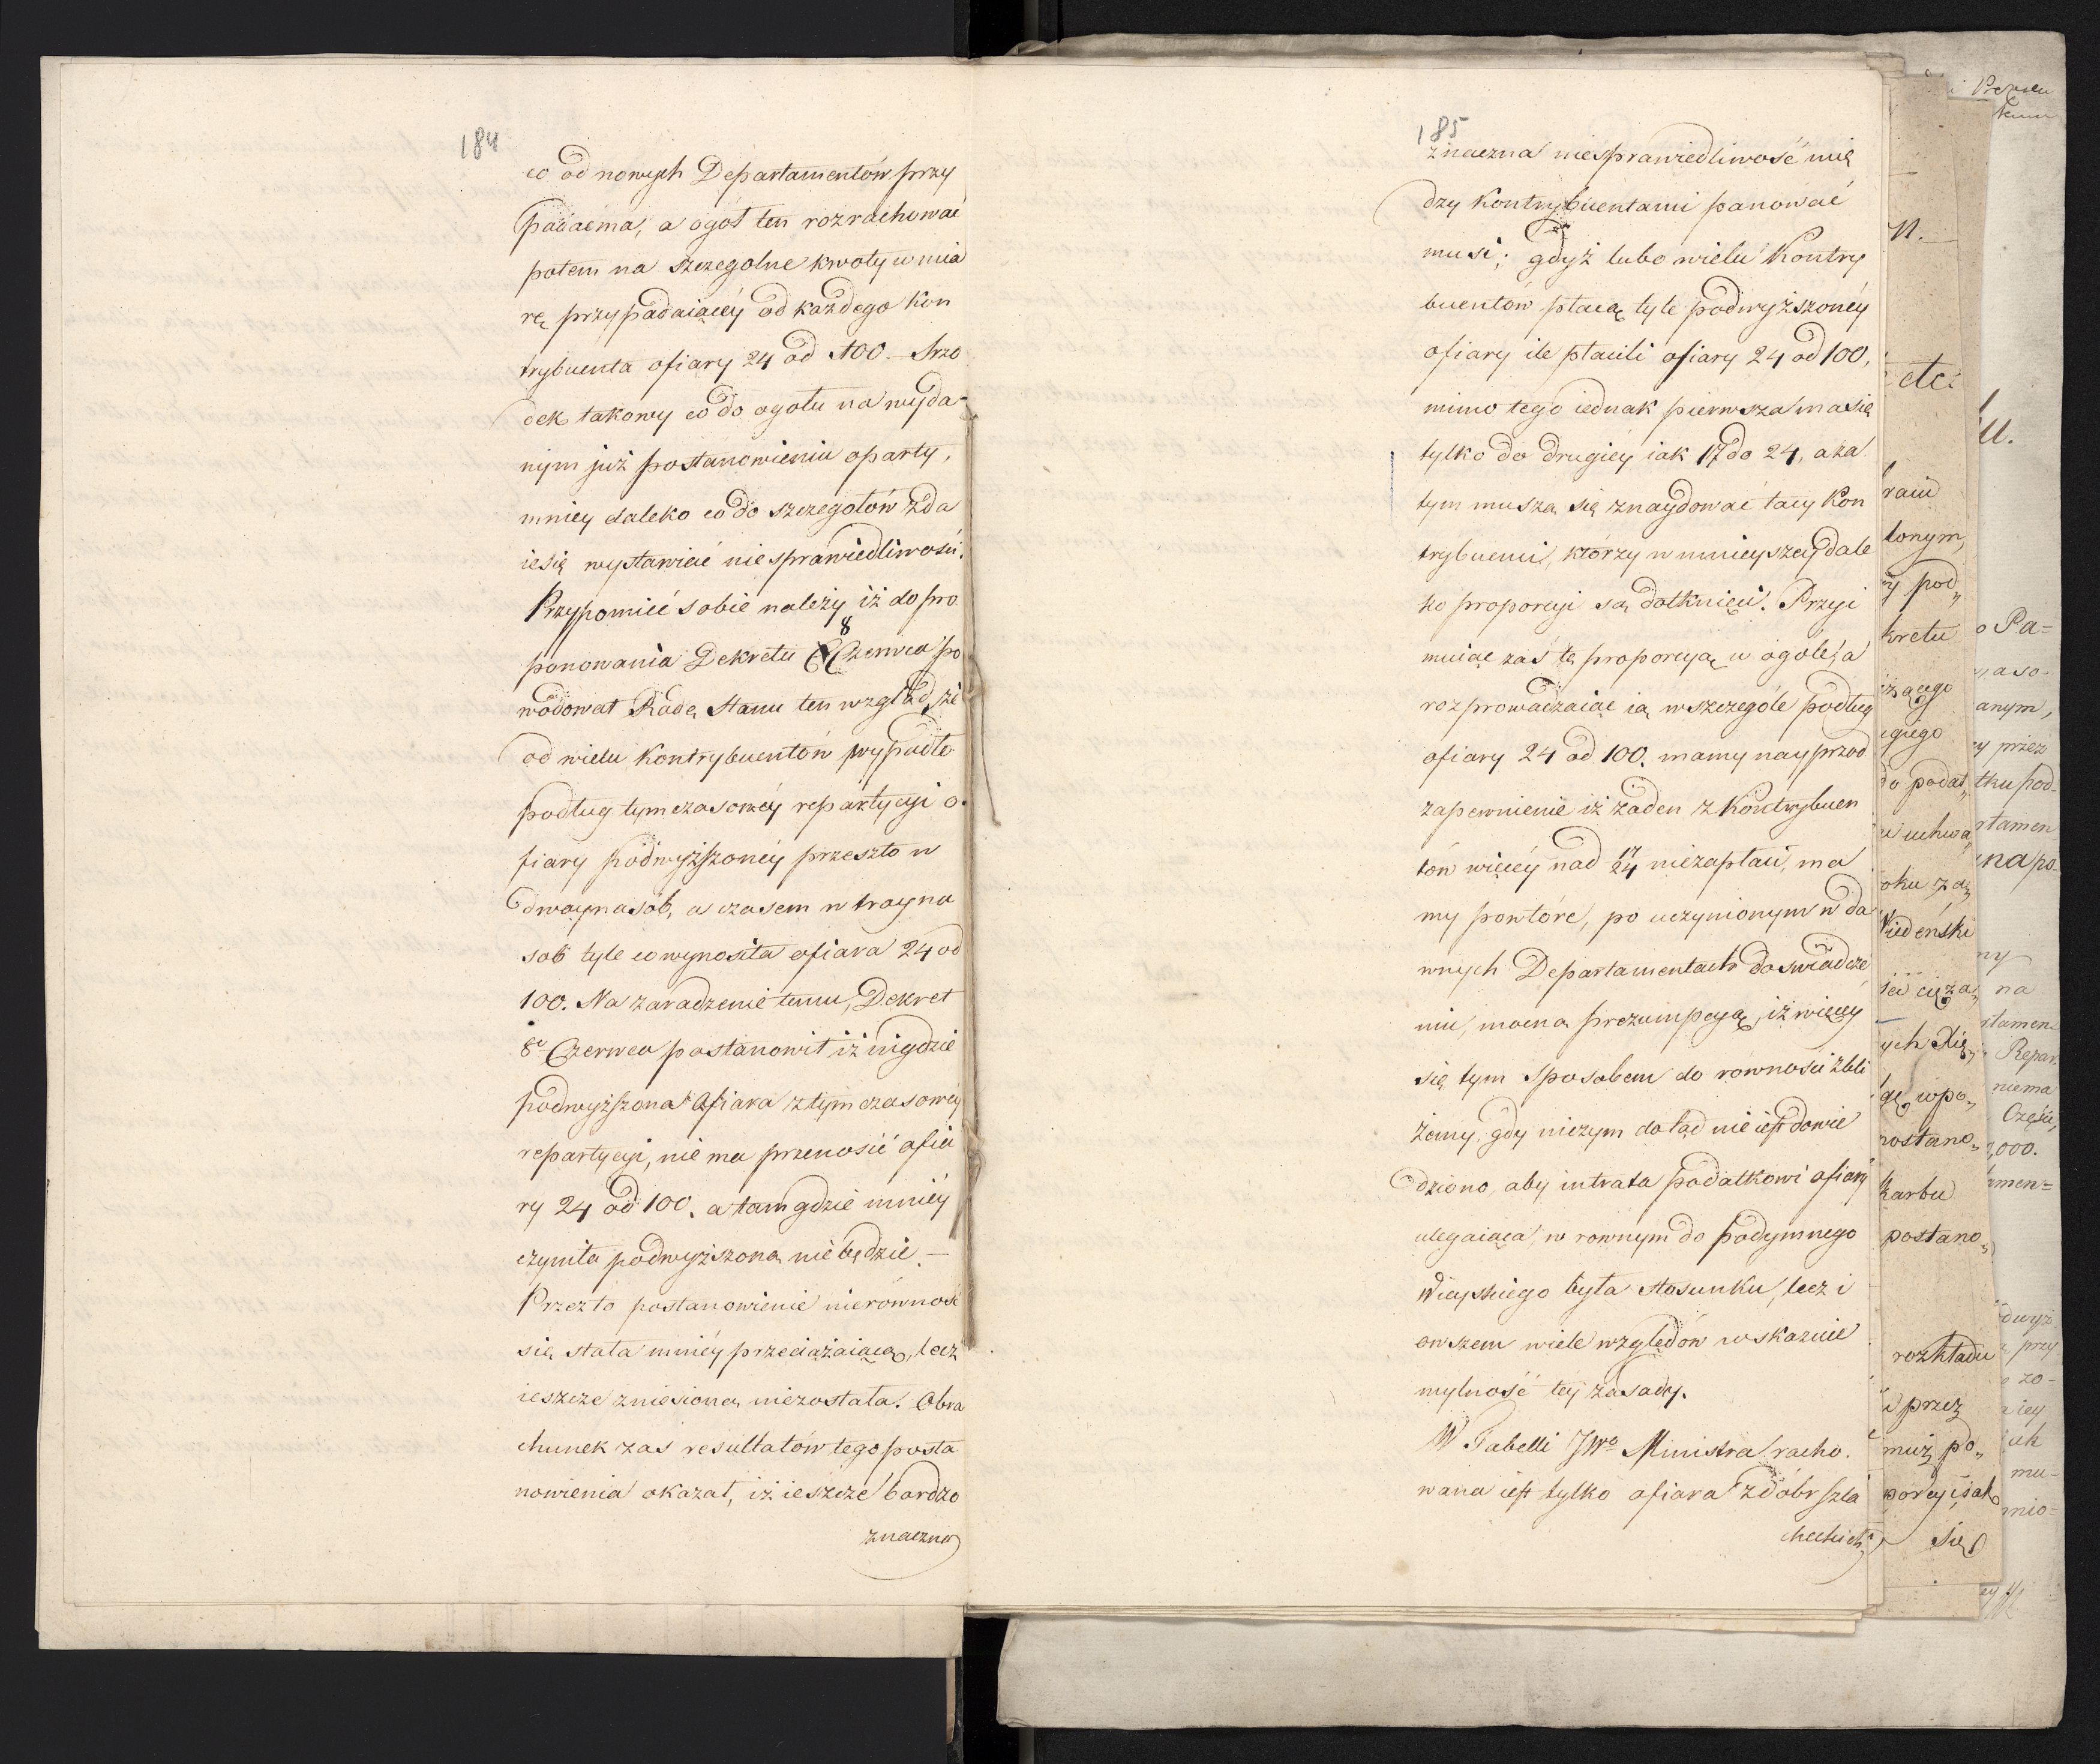 184
co od nowych Departamentów przy
padać ma, a ogół ten rozrachować
potem na szczegolne kwoty w mia
rę przypadaiącéy od każdego Kon
trybuenta ofiary 24 od 100. Srzo
dek takowy co do ogołu na wyda-
nym już postanowieniu oparty,
mniey daleko co do szczegołów zda
ie się wystawieć niesprawiedliwości.
Przypomieć sobie należy iż do pro
ponowania Dekretu 8 Czerwca po
wodował Radę Stanu ten wzgląd, że
od wielu Kontrybuentów wypadło
podług tymczasowéy repartycyi o
fiary podwyższonéy przeszło w
dwaynasób, a czasem w troyna
sob tyle co wynosiła ofiara 24 od
100. Na zaradzenie temu, Dekret
8º Czerwca postanowił, iż nigdzie
podwyższona Ofiara z tymczasowéy
repartycyi, nie ma przenosić ofia
ry 24 od 100. a tam gdzie mniéy
czyniła podwyższoną nie będzie.—
Przez to postanowienie nierówność
się stała mniéy przeciążaiącą, lecz
ieszcze zniesioną niezostała. Obra
chunek zas resultatów tego posta
nowienia okazał, iż ieszcze bardzo
znaczna
185
znaczna niesprawiedliwość mię
dzy Kontrybuentami panować
musi; gdyż lubo wielu Kontry
buentów płacą tyle podwyższonéy
ofiary ile płacili ofiary 24 od 100,
mimo tego iednak pierwsza ma się
tylko do drugiéy iak 17 do 24, a za
tym muszą się znaydować tacy Kon
trybuenci, którzy w mnieyszey dale
ko proporcyi są dotknięci. Przyi
muiąc zaś tę proporcyą w ogóle, a
rozprowadzaiąc ią w szczególe podług
ofiary 24 od 100. mamy nayprzod
zapewnienie iż żaden z Kontrybuen
tów więcéy nad 17/24 niezapłaci, ma
my powtóre, po uczynionym w da
wnych Departamentach doswiadcze
niu, mocną prezumpcyą, iż więcéy
się tym sposobem do rownosci zbli
żamy, gdy niczym dotąd nie iest dowie
dziono, aby intrata podatkowi ofiary
ulegaiąca w rownym do podymnego
Wieyskiego była stosunku, lecz i
owszem wiele względów wskazuie
mylność tey zasady.
W Tabelli JWº Ministra racho
wana iest tylko ofiara z dóbr szla
checkich
n.
etc.
tonym,
y pod„
kretu
iżącego
do podat„
u uchwa„
oku za„
Wiedeński
ych Xię„
wpo„
postano„
karbu
postano„
rozkładu
i przez
muię po„
się
o Pa=
anym,
y przez
tku pod-
rtamen
na po-
ny
na
rtamen-
Repar.
niema
Części,
,000.
amen=
przy
zo-
iak
mu-
mnio=